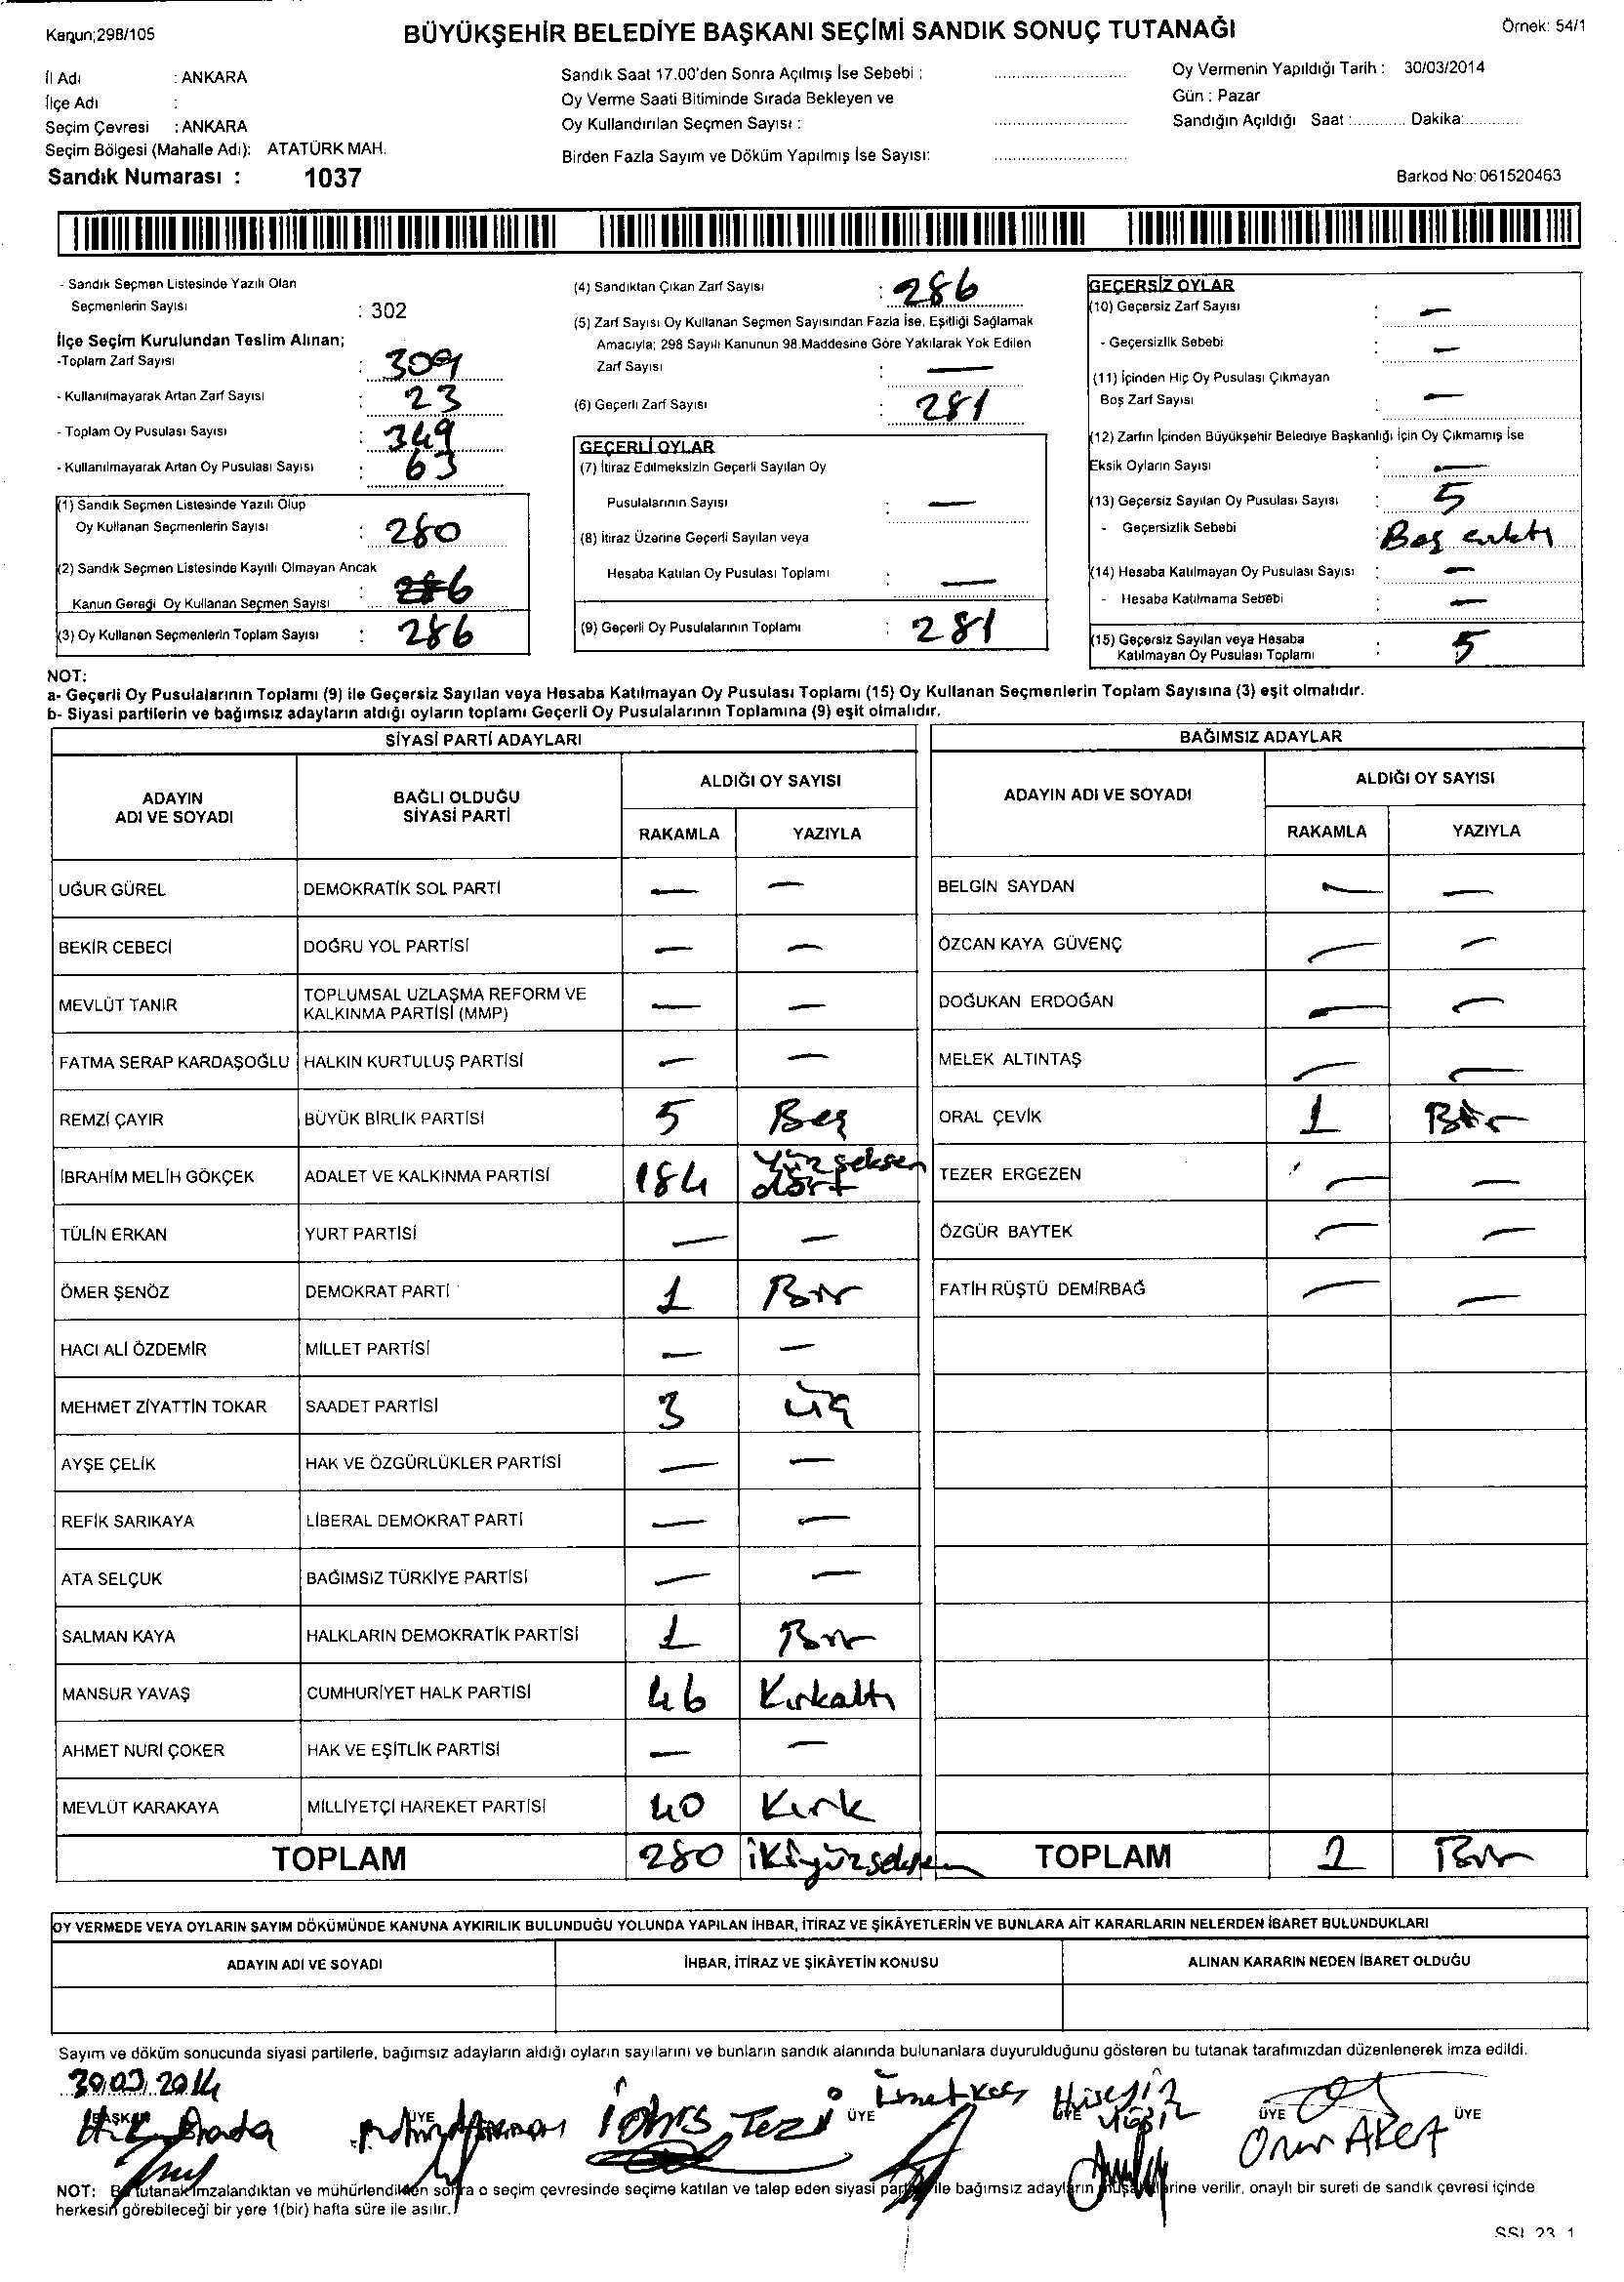 Kanun;298/105
BÜYÜKŞEHİR BELEDİYE BAŞKANI SEÇİMİ SANDIK SONUÇ TUTANAĞI
Örnek: 54/1
İl Adı : ANKARA
İlçe Adı :
Seçim Çevresi : ANKARA
Seçim Bölgesi (Mahalle Adı): ATATÜRK MAH.
Sandık Numarası : 1037
Sandık Saat 17.00'den Sonra Açılmış İse Sebebi :
Oy Verme Saati Bitiminde Sırada Bekleyen ve
Oy Kullandırılan Seçmen Sayısı :
Birden Fazla Sayım ve Döküm Yapılmış İse Sayısı:
Oy Vermenin Yapıldığı Tarih : 30/03/2014
Gün : Pazar
Sandığın Açıldığı Saat :............ Dakika:............
Barkod No: 061520463
- Sandık Seçmen Listesinde Yazılı Olan
Seçmenlerin Sayısı : 302
İlçe Seçim Kurulundan Teslim Alınan;
-Toplam Zarf Sayısı : 309
- Kullanılmayarak Artan Zarf Sayısı : 23
- Toplam Oy Pusulası Sayısı : 349
- Kullanılmayarak Artan Oy Pusulası Sayısı : 63
(1) Sandık Seçmen Listesinde Yazılı Olup
Oy Kullanan Seçmenlerin Sayısı : 280
(2) Sandık Seçmen Listesinde Kayıtlı Olmayan Ancak
Kanun Gereği Oy Kullanan Seçmen Sayısı : 6
(3) Oy Kullanan Seçmenlerin Toplam Sayısı : 286
(4) Sandıktan Çıkan Zarf Sayısı : 286
(5) Zarf Sayısı Oy Kullanan Seçmen Sayısından Fazla İse, Eşitliği Sağlamak
Amacıyla; 298 Sayılı Kanunun 98.Maddesine Göre Yakılarak Yok Edilen
Zarf Sayısı : —
(6) Geçerli Zarf Sayısı : 281
GEÇERLİ OYLAR
(7) İtiraz Edilmeksizin Geçerli Sayılan Oy
Pusulalarının Sayısı : —
(8) İtiraz Üzerine Geçerli Sayılan veya
Hesaba Katılan Oy Pusulası Toplamı : —
(9) Geçerli Oy Pusulalarının Toplamı : 281
GEÇERSİZ OYLAR
(10) Geçersiz Zarf Sayısı : —
- Geçersizlik Sebebi : —
(11) İçinden Hiç Oy Pusulası Çıkmayan
Boş Zarf Sayısı : —
(12) Zarfın İçinden Büyükşehir Belediye Başkanlığı İçin Oy Çıkmamış İse
Eksik Oyların Sayısı : —
(13) Geçersiz Sayılan Oy Pusulası Sayısı : 5
- Geçersizlik Sebebi : Boş çıktı
(14) Hesaba Katılmayan Oy Pusulası Sayısı : —
- Hesaba Katılmama Sebebi : —
(15) Geçersiz Sayılan veya Hesaba
Katılmayan Oy Pusulası Toplamı : 5
NOT:
a- Geçerli Oy Pusulalarının Toplamı (9) ile Geçersiz Sayılan veya Hesaba Katılmayan Oy Pusulası Toplamı (15) Oy Kullanan Seçmenlerin Toplam Sayısına (3) eşit olmalıdır.
b- Siyasi partilerin ve bağımsız adayların aldığı oyların toplamı Geçerli Oy Pusulalarının Toplamına (9) eşit olmalıdır.
SİYASİ PARTİ ADAYLARI
ADAYIN ADI VE SOYADI | BAĞLI OLDUĞU SİYASİ PARTİ | ALDIĞI OY SAYISI
RAKAMLA | YAZIYLA
UĞUR GÜREL | DEMOKRATİK SOL PARTİ | — | —
BEKİR CEBECİ | DOĞRU YOL PARTİSİ | — | —
MEVLÜT TANIR | TOPLUMSAL UZLAŞMA REFORM VE KALKINMA PARTİSİ (MMP) | — | —
FATMA SERAP KARDAŞOĞLU | HALKIN KURTULUŞ PARTİSİ | — | —
REMZİ ÇAYIR | BÜYÜK BİRLİK PARTİSİ | 5 | Beş
İBRAHİM MELİH GÖKÇEK | ADALET VE KALKINMA PARTİSİ | 184 | Yüzseksen dört
TÜLİN ERKAN | YURT PARTİSİ | — | —
ÖMER ŞENÖZ | DEMOKRAT PARTİ | 1 | Bir
HACI ALİ ÖZDEMİR | MİLLET PARTİSİ | — | —
MEHMET ZİYATTİN TOKAR | SAADET PARTİSİ | 3 | Üç
AYŞE ÇELİK | HAK VE ÖZGÜRLÜKLER PARTİSİ | — | —
REFİK SARIKAYA | LİBERAL DEMOKRAT PARTİ | — | —
ATA SELÇUK | BAĞIMSIZ TÜRKİYE PARTİSİ | — | —
SALMAN KAYA | HALKLARIN DEMOKRATİK PARTİSİ | 1 | Bir
MANSUR YAVAŞ | CUMHURİYET HALK PARTİSİ | 46 | Kırkaltı
AHMET NURİ ÇOKER | HAK VE EŞİTLİK PARTİSİ | — | —
MEVLÜT KARAKAYA | MİLLİYETÇİ HAREKET PARTİSİ | 40 | Kırk
TOPLAM | 280 | ikiyüzseksen
BAĞIMSIZ ADAYLAR
ADAYIN ADI VE SOYADI | ALDIĞI OY SAYISI
RAKAMLA | YAZIYLA
BELGİN SAYDAN | — | —
ÖZCAN KAYA GÜVENÇ | — | —
DOĞUKAN ERDOĞAN | — | —
MELEK ALTINTAŞ | — | —
ORAL ÇEVİK | 1 | Bir
TEZER ERGEZEN | — | —
ÖZGÜR BAYTEK | — | —
FATİH RÜŞTÜ DEMİRBAĞ | — | —
TOPLAM | 1 | Bir
OY VERMEDE VEYA OYLARIN SAYIM DÖKÜMÜNDE KANUNA AYKIRILIK BULUNDUĞU YOLUNDA YAPILAN İHBAR, İTİRAZ VE ŞİKÂYETLERİN VE BUNLARA AİT KARARLARIN NELERDEN İBARET BULUNDUKLARI
ADAYIN ADI VE SOYADI | İHBAR, İTİRAZ VE ŞİKÂYETİN KONUSU | ALINAN KARARIN NEDEN İBARET OLDUĞU
Sayım ve döküm sonucunda siyasi partilerle, bağımsız adayların aldığı oyların sayılarını ve bunların sandık alanında bulunanlara duyurulduğunu gösteren bu tutanak tarafımızdan düzenlenerek imza edildi.
30.03.2014
BAŞKAN ÜYE ÜYE ÜYE ÜYE ÜYE
İdris Tezi İsmet Koç Hüseyin Onur Akert
NOT: Bu tutanak imzalandıktan ve mühürlendikten sonra o seçim çevresinde seçime katılan ve talep eden siyasi parti ile bağımsız adayların müşahitlerine verilir, onaylı bir sureti de sandık çevresi içinde
herkesin görebileceği bir yere 1(bir) hafta süre ile asılır.